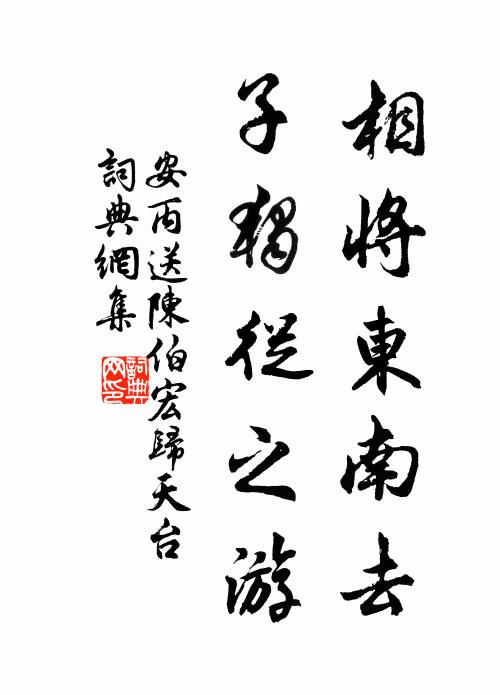 相將東南去
子獨從之游
安丙送陳伯宏歸天台
詞典網集
詞典网印